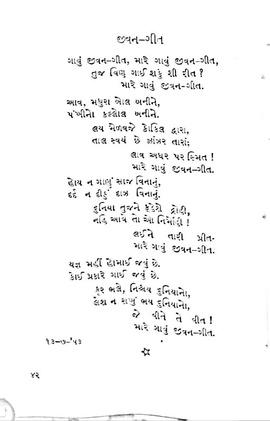 જીવન-ગીત
ગાવું જીવન-ગીત, મારે ગાવું જીવન-ગીત,
તુજ વિણ ગાઈ શકું શી રીત?
મારે ગાવું જીવન-ગીત.
આવ, મધુરા બોલ બનીને,
પંખીનો કલ્લોલ બનીને.
લય મેળવજે કોકિલ દ્વારા,
તાલ સ્વયં છે ઝાંઝર તારાં;
લાવ અધર પર સ્મિત!
મારે ગાવું જીવન-ગીત.
હોય ન ગાણું સાજ વિનાનું,
દર્દ ન દીઠું દાઝ વિનાનું,
દુનિયા તુજને કહેશે દ્રોહી,
નહિ આવે તો ઓ નિર્મોહી!
લઈને તારી પ્રીત.
મારે ગાવું જીવન-ગીત.
યજ્ઞ મહીં હોમાઈ જવું છે.
કોઈ પ્રકારે ગાઈ જવું છે.
ક્રૂર ભલે, નિશ્ચય દુનિયાનો,
લેશ ન રાખું ભય દુનિયાનો,
જે વીતે તે વીત!
મારે ગાવું જીવન-ગીત.
૧૩-૭-'૫૩
૪૨